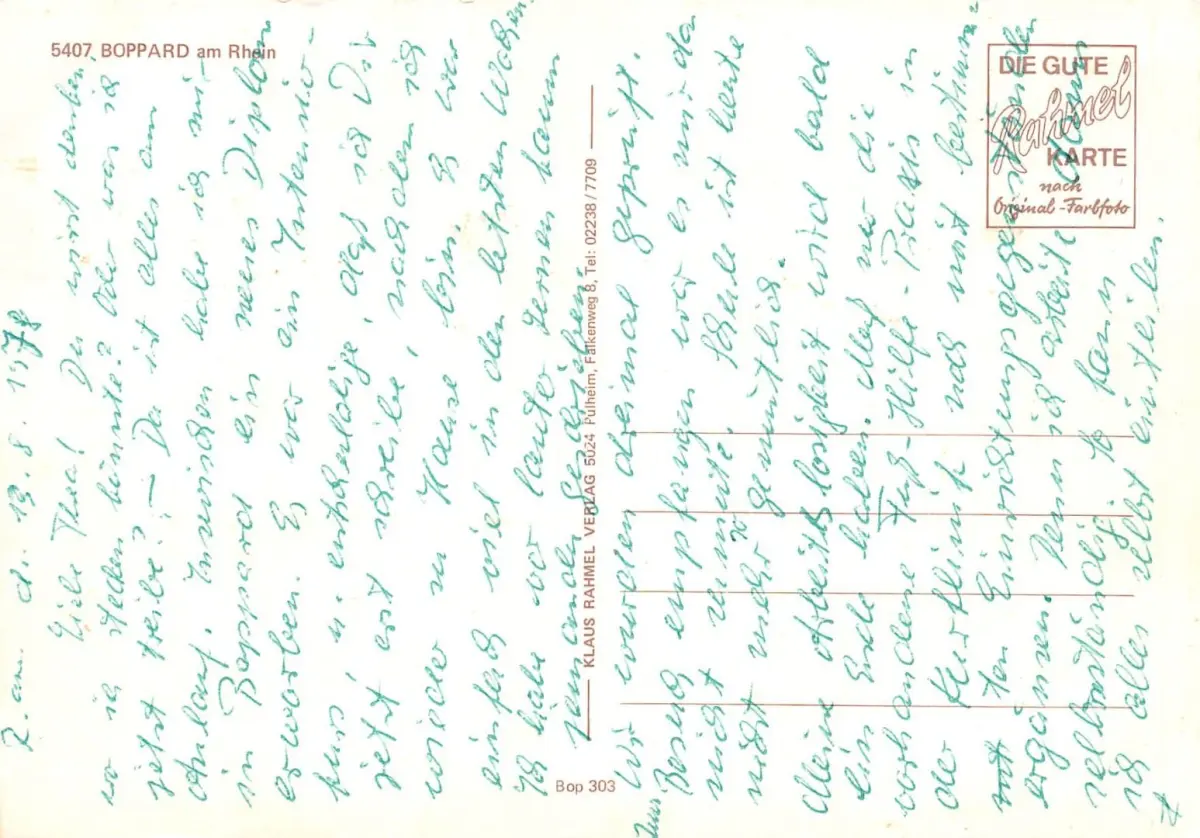 5407 BOPPARD am Rhein
DIE GUTE
Rahmel
KARTE
nach
Original-Farbfoto
KLAUS RAHMEL VERLAG 5024 Pulheim, Falkenweg 8, Tel: 02238/7709
Bop 303
R. am d. 19. 8. 1978
Liebe Thea! Du wirst denken,
wo ich stecken könnte? Oder was ich
jetzt treibe? – Da ist alles am
Anlauf. Inzwischen habe ich mir
in Boppard ein neues Diplom
erworben. Es war ein Intensiv-
kurs u. entschuldige, daß ich Dir
jetzt erst schreibe, nachdem ich
wieder zu Hause bin. Es war
einfach viel in den letzten Wochen.
Ich habe vor lauter Lernen kaum
jemanden geschrieben.
Wir wurden dreimal geprüft.
Besuch empfangen war es mir da
nicht zumute. Ich bin heute
nicht mehr so gemütlich.
Meine Arbeitslosigkeit wird bald
ein Ende haben. Muß nur die
vorhandene Fuß-Hilfe-Praxis in
der Kurklinik noch mit bestimm-
ten Einrichtungsgegenständen
ergänzen. Denn ich arbeite dann
selbständig. So kann
ich alles selbst einteilen.